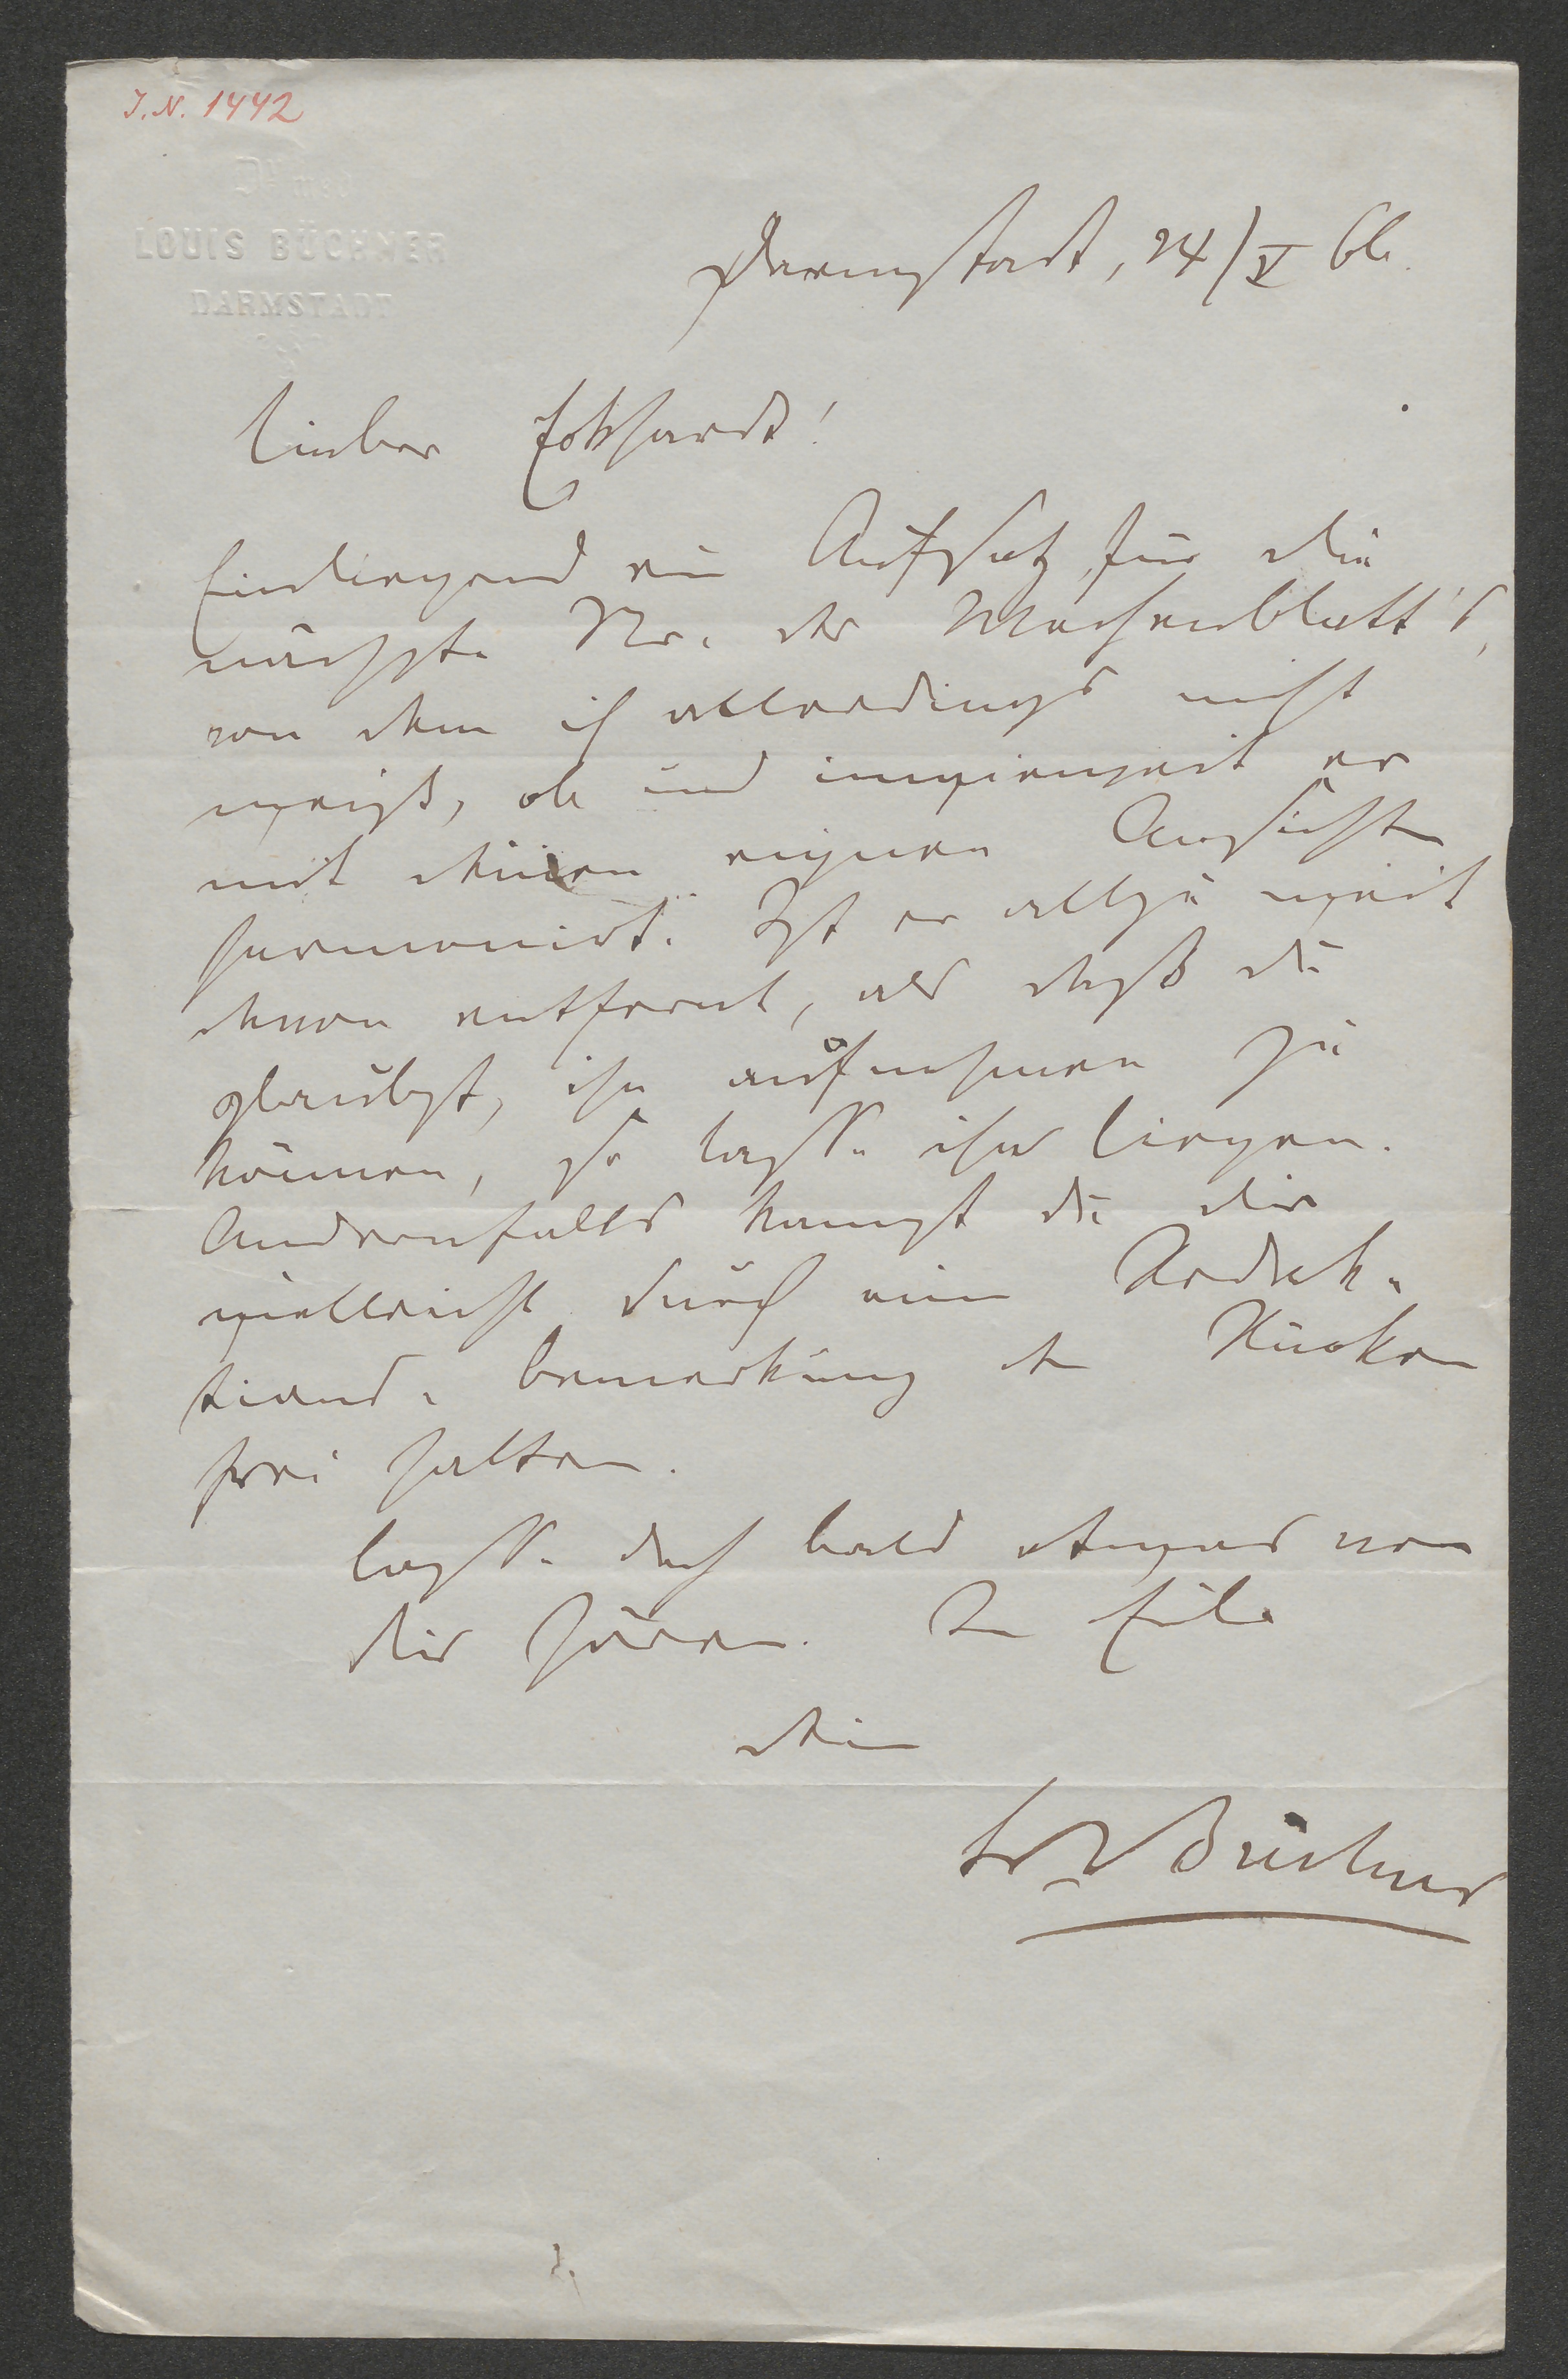 J. N. 1442
Dr med
LOUIS BÜCHNER
DARMSTADT
Darmstadt, 24/V 66.
Lieber Eckhardt!
Einliegend ein Aufsatz für die
nächste Nr. des Wochenblatt's,
von dem ich allerdings nicht
weiß, ob und inwieweit er
mit deinen eignen Ansichten
harmonirt. Ist er allzu weit
davon entfernt, als daß du
glaubst, ihn aufnehmen zu
können, so lasse ihn liegen.
Andrenfalls kannst du dir
vielleicht durch eine Redak-
tions-Bemerkung den Rücken
frei halten.
Lasse doch bald etwas von
dir hören. In Eile
dein
Dr L Büchner